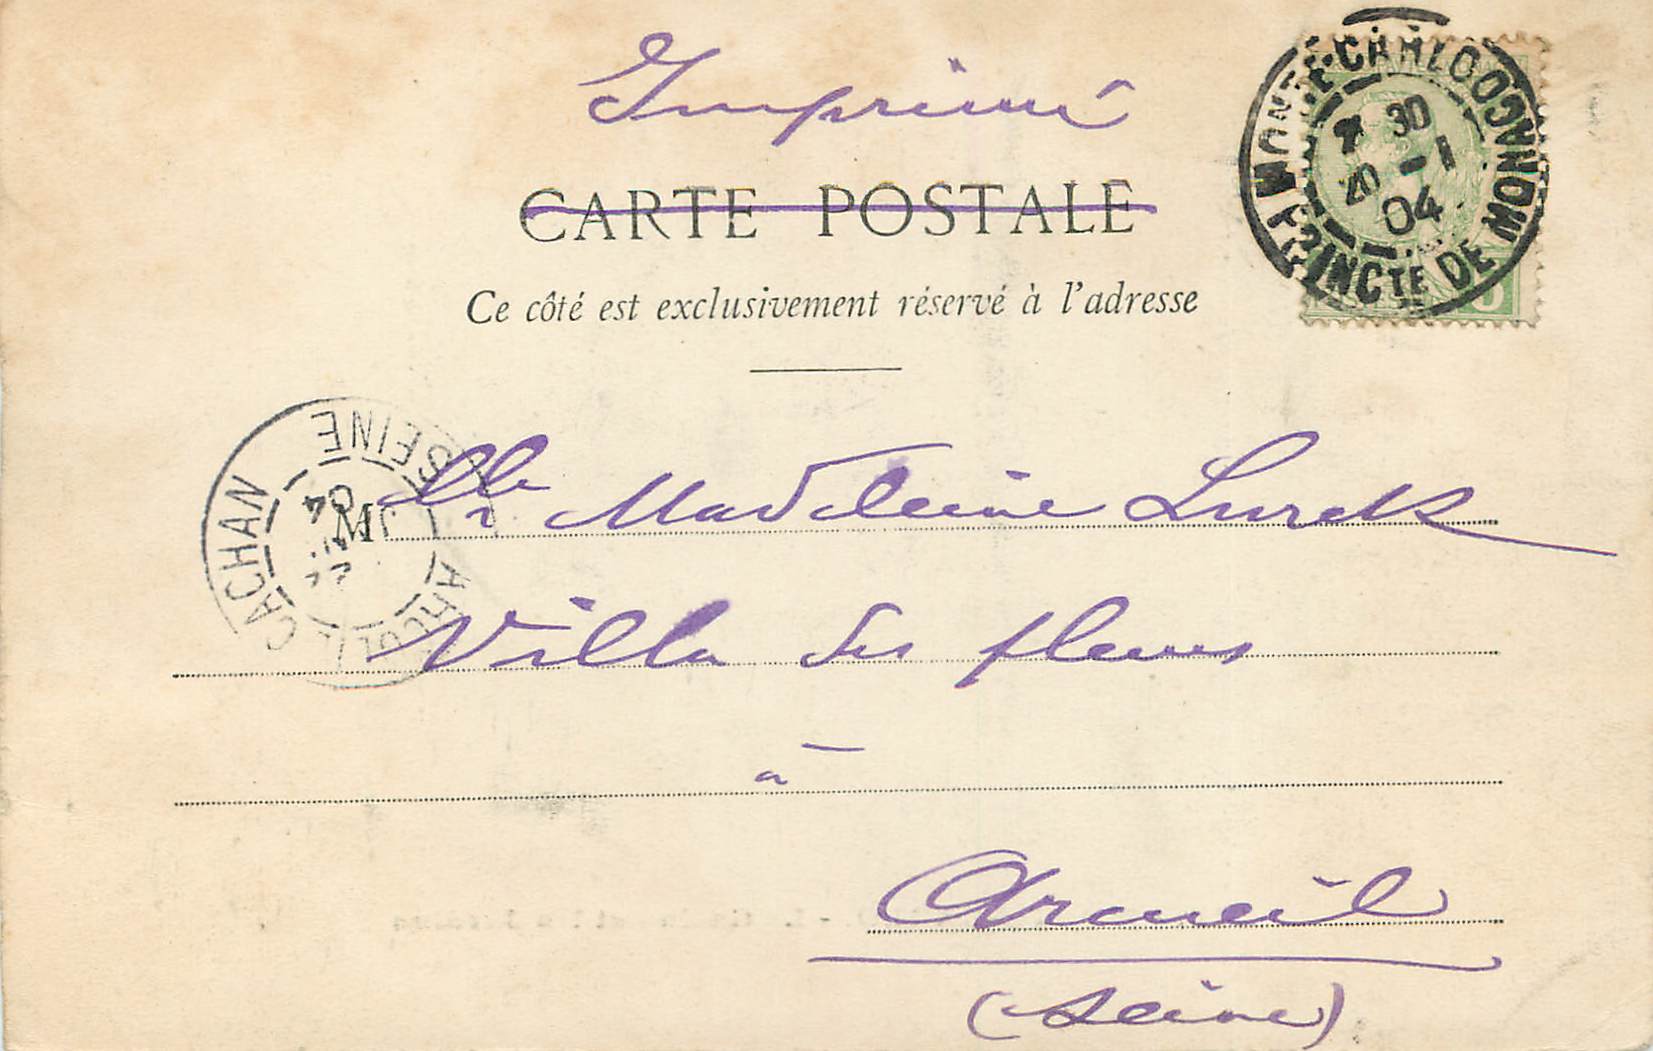 Imprimé
CARTE POSTALE
Ce côté est exclusivement réservé à l'adresse
MONTE-CARLO
PRINCTE DE MONACO
30
20 -1
04
5
ARCUEIL CACHAN
SEINE
04
Mlle Madeleine Lurck
Villa des fleurs
à
Arcueil
(Seine)